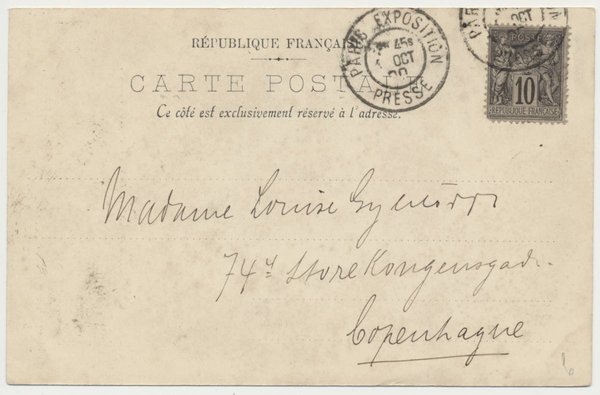 RÉPUBLIQUE FRANÇAI
CARTE POSTAL
Ce côté est exclusivement réservé à l'adresse.
PARIS EXPOSITION
45s
OCT
00
PRESSE
PAR
ON
OCT
POSTE
10
REPUBLIQUE FRANÇAISE
Madame Louise
74 Store Kongensgad.
Copenhague